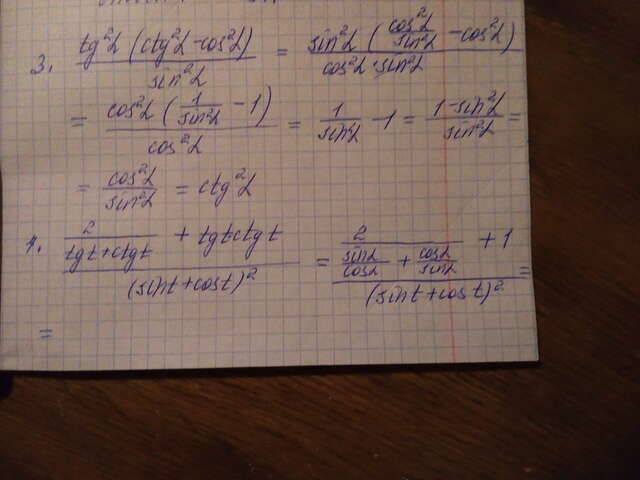 3. tg²α (ctg²α - cos²α) / sin²α = sin²α (cos²α/sin²α - cos²α) / cos²α · sin²α
= cos²α (1/sin²α - 1) / cos²α = 1/sin²α - 1 = 1-sin²α / sin²α =
= cos²α / sin²α = ctg²α
4. (2 / tgt+ctgt + tgtctgt) / (sint+cost)² = (2 / (sinα/cosα + cosα/sinα) + 1) / (sint+cost)² =
=